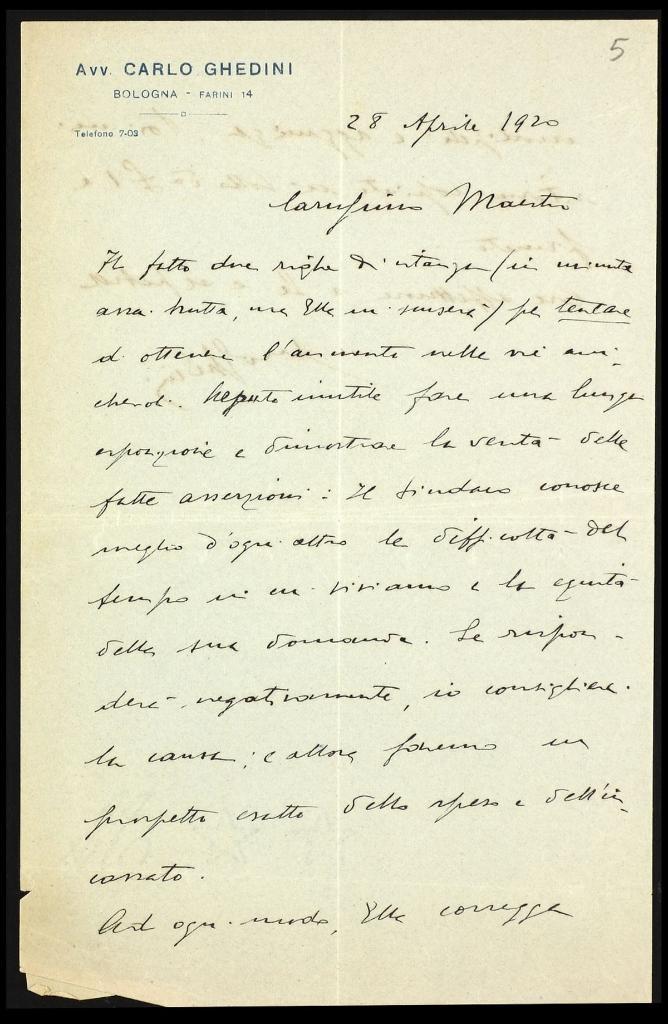 5
Avv. CARLO GHEDINI
BOLOGNA - FARINI 14
Telefono 7-03
28 Aprile 1920
Carissimo Maestro
Ho fatto due righe d'istanza (in minuta
assai brutta, ma Ella mi scuserà) per tentare
di ottenere l'aumento nelle vie ami-
chevoli. Reputo inutile fare una lunga
esposizione e dimostrare la verità delle
fatte asserzioni: Il Sindaco conosce
meglio d'ogni altro le difficoltà del
tempo in cui viviamo e la equità
della sua domanda. Se rispon-
derà negativamente, io consiglierei
la causa; e allora faremo un
prospetto esatto della spesa e dell'in-
cassato.
Ad ogni modo, Ella corregga